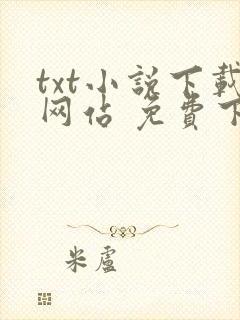 txt小説下載
网站 免費下
米盧